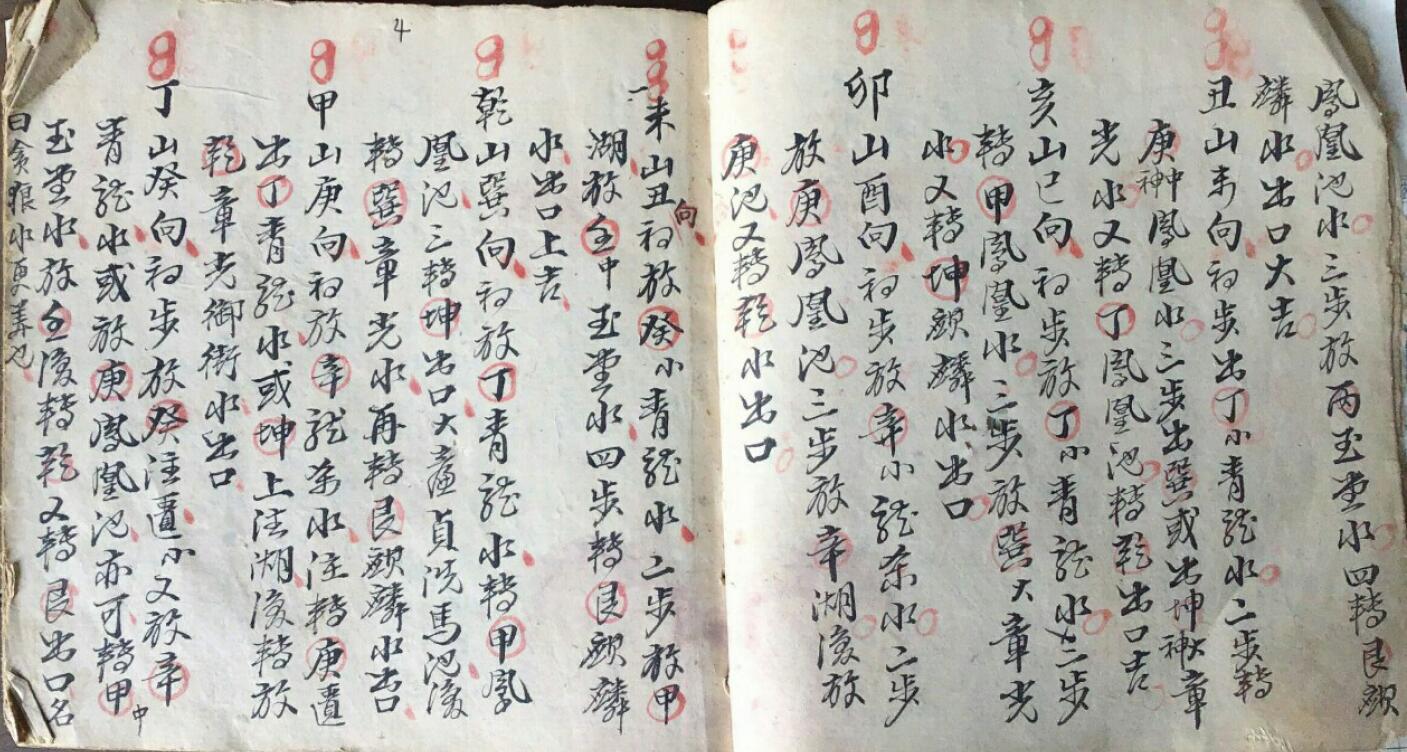 鳳凰池水三步放丙玉堂水四轉艮麒
麟水出口大吉
丑山未向初步出丁小青龍水二步轉
庚中神鳳凰水三步出巽或出坤大神章
光水又轉丁鳳凰池轉乾出口吉
亥山巳向初步放丁小青龍水二步
轉甲鳳凰水三步放巽大章光
水又轉坤麒麟水出口
卯山酉向初步放辛小龍條水二步
放庚鳳凰池三步放辛湖後放
庚池又轉乾水出口
未山丑向初放癸小青龍水二步放甲
湖放壬中玉堂水四步轉艮麒麟
水出口上吉
乾山巽向初放丁青龍水轉甲鳳
凰池三轉坤出口大廉貞洗馬池後
轉巽章光水再轉艮麒麟水出口
甲山庚向初放辛龍條水注轉庚
出丁青龍水或坤上注湖後轉放
乾章光御街水出口
丁山癸向初步放癸注小又放辛
青龍水或放庚鳳凰池亦可轉甲中
玉堂水放壬後轉乾又轉艮出口名
曰貪狼水更美也
4